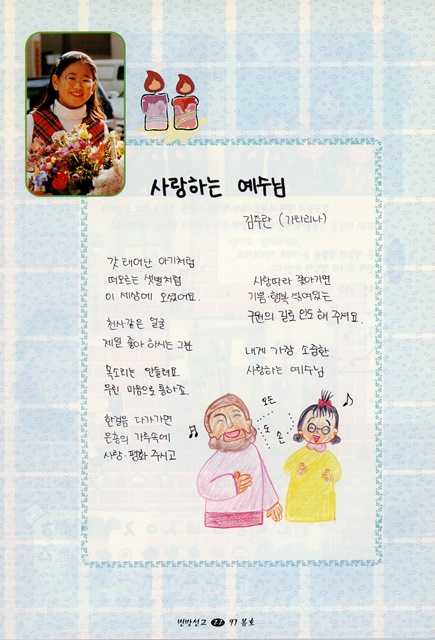 사랑하는 예수님
김주란 (가타리나)
갓 태어난 아기처럼
떠오르는 샛별처럼
이 세상에 오셨어요.
천사같은 얼굴
제일 좋아 하시는 그분
목소리는 안들려요
우린 마음으로 통하죠
한걸음 다가가면
은총의 가루속에
사랑·평화 주시고
사랑따라 쫓아가면
기쁨·행복 섞여있는
구원의 길로 인도해 주셔요.
내게 가장 소중한
사랑하는 예수님
모든
것
손
빈방선교 27 97 봄호